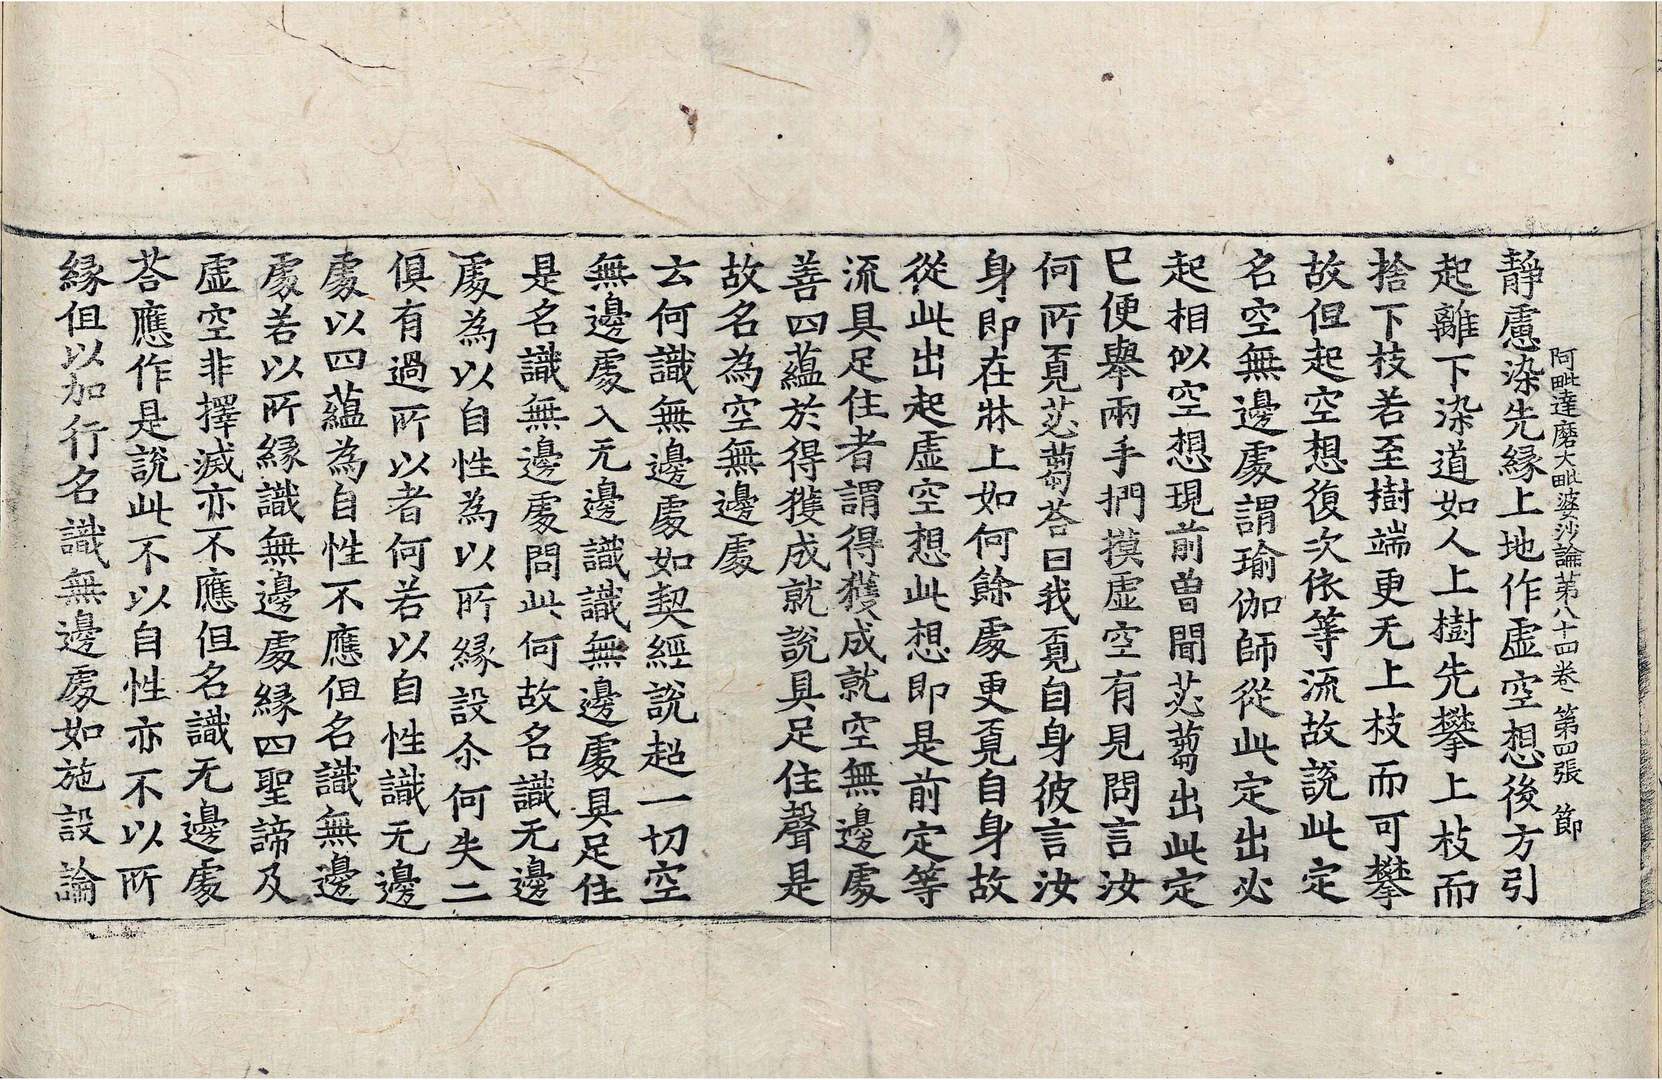 阿毗達磨大毗婆沙論第八十四卷 第四張 節
靜慮染先縁上地作虛空想後方引
起離下染道如人上樹先攀上枝而
捨下枝若至樹端更无上枝而可攀
故但起空想復次依等流故說此定
名空無邊處謂瑜伽師從此定出必
起相似空想現前曾聞苾蒭出此定
已便舉兩手捫摸虛空有見問言汝
何所覔苾蒭荅曰我覔自身彼言汝
身即在牀上如何餘處更覔自身故
從此出起虛空想此想即是前定等
流具足住者謂得獲成就空無邊處
善四蘊於得獲成就說具足住聲是
故名為空無邊處
云何識無邊處如契經說超一切空
無邊處入无邊識識無邊處具足住
是名識無邊處問此何故名識无邊
處為以自性為以所縁設尒何失二
俱有過所以者何若以自性識无邊
處以四蘊為自性不應但名識無邊
處若以所縁識無邊處縁四聖諦及
虛空非擇滅亦不應但名識无邊處
荅應作是說此不以自性亦不以所
縁但以加行名識無邊處如施設論